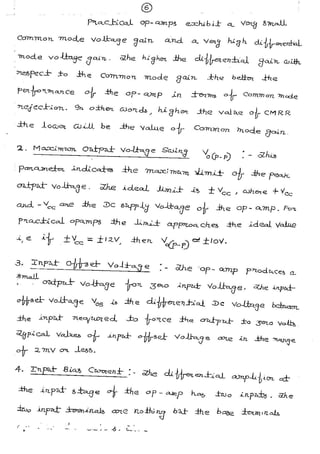 6
Practical op-amps exhibit a very small
common mode voltage gain and a very high differential
mode voltage gain. The higher the differential gain with
respect to the common mode gain the better the
performance of the op-amp in terms of common mode
rejection. In other words, higher the value of CMRR
the lower will be the value of common mode gain.
2. Maximum Output Voltage Swing Vo(p-p) :- This
parameter indicates the maximum limit of the peak
output voltage. The ideal limit is ± Vcc, where + Vcc
and - Vcc are the DC supply voltage of the op-amp. For
practical opamps the limit approaches the ideal value
i,e if ± Vcc = ±12V, then Vo(p-p) ≅ ±10V.
3. Input Offset Voltage :- The op-amp produces a
small
output voltage for zero input voltage. The input
offset voltage Vos is the differential DC voltage between
the input required to force the output to zero volts
Typical values of input offset voltage are in the range
of 2mV or less.
4. Input Bias Current :- The differential amplifier at
the input stage of the op-amp has two inputs. The
two input terminals are nothing but the base terminals